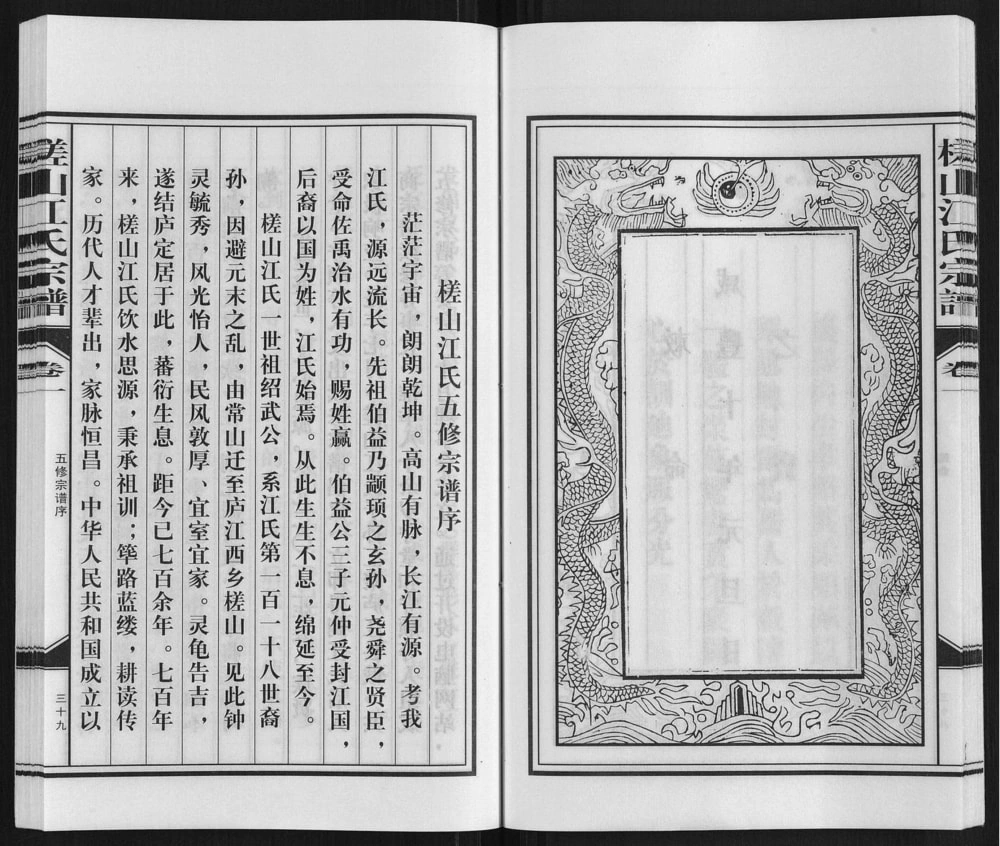 槎山江氏宗譜
卷一
槎山江氏五修宗谱序
茫茫宇宙，朗朗乾坤。高山有脉，长江有源。考我
江氏，源远流长。先祖伯益乃颛顼之玄孙，尧舜之贤臣，
受命佐禹治水有功，赐姓嬴。伯益公三子元仲受封江国，
后裔以国为姓，江氏始焉。从此生生不息，绵延至今。
槎山江氏一世祖绍武公，系江氏第一百一十八世裔
孙，因避元末之乱，由常山迁至庐江西乡槎山。见此钟
灵毓秀，风光怡人，民风敦厚、宜室宜家。灵龟告吉，
遂结庐定居于此，蕃衍生息。距今已七百余年。七百年
来，槎山江氏饮水思源，秉承祖训；筚路蓝缕，耕读传
家。历代人才辈出，家脉恒昌。中华人民共和国成立以
槎山江氏宗譜
卷一
五修宗谱序
三十九